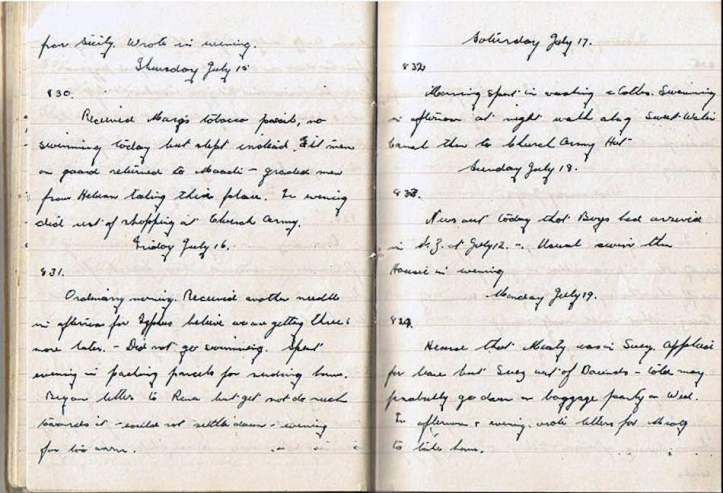 for Sicily. Wrote in evening.
Thursday July 15
830.
Received Marg's tobacco parcel, no
swimming today but slept instead. Fit men
on guard returned to Maadi - graded men
from Helwan taking their place. In evening
did rest of shopping at Church Army.
Friday July 16.
831.
Ordinary morning. Received another needle
in afternoon for Typhus believe we are getting three
more later. - Did not go swimming. Spent
evening in packing parcels for sending home.
Began letter to Rewa but got not do much
towards it - could not settle down - evening
for too warm.
Saturday July 17.
832
Morning spent in washing clothes. Swimming
in afternoon at night walk along Sweet Water
Canal then to Church Army Hut
Sunday July 18.
833.
News out today that Boys had arrived
in N.Z. at July 12. - Usual swim then
Housie in evening
Monday July 19.
834.
Hense that was in Suez. Applied
for leave but Suez out of Bounds - told may
probably go down on baggage party on Wed.
In afternoon & evening wrote letters for
to take home.